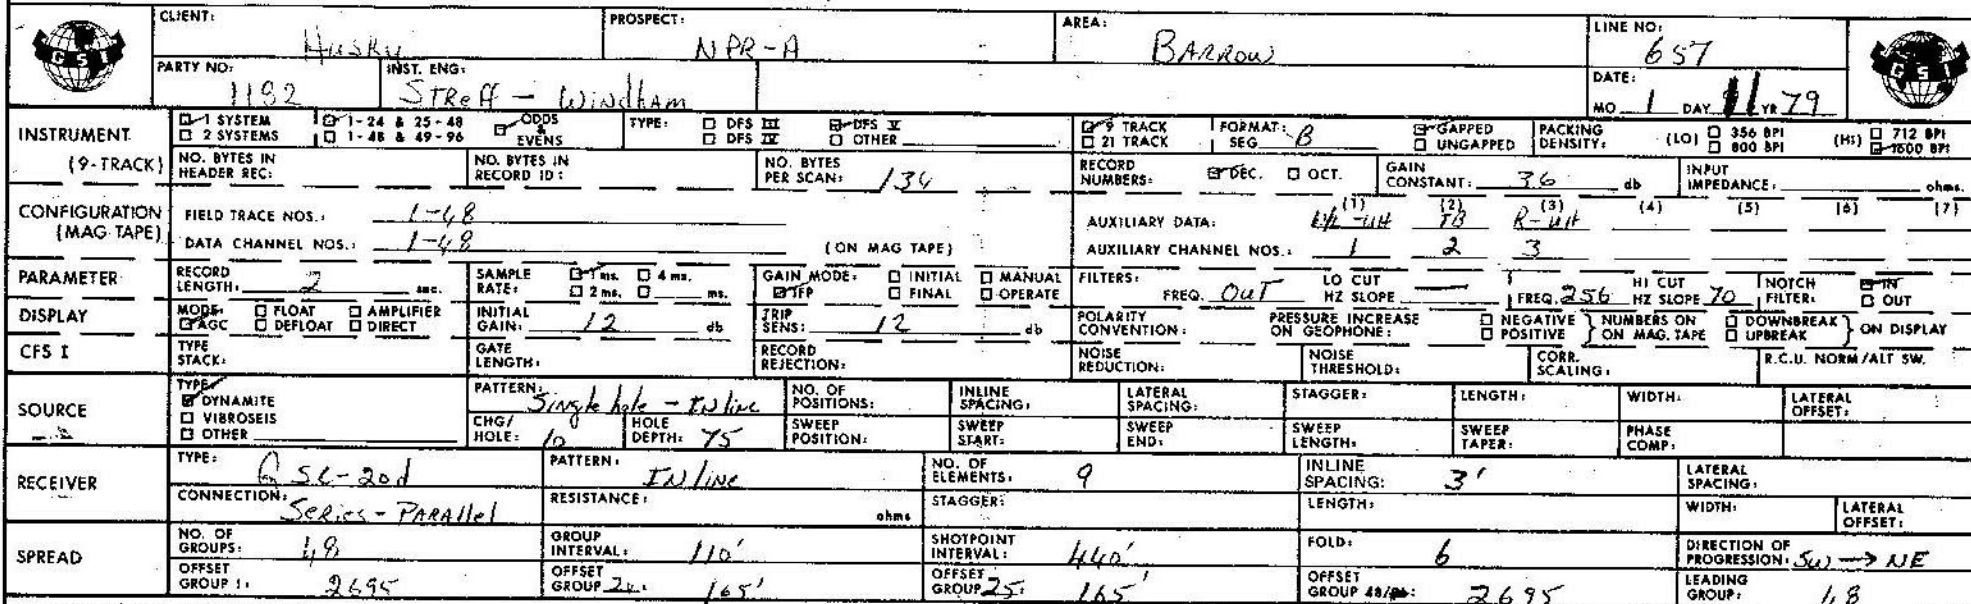 CLIENT: Husky PROSPECT: NPR-A AREA: BARROW LINE NO: 657
GSI GSI
PARTY NO: 1182 INST. ENG: STReff - WindhAm DATE: MO 1 DAY 11 YR 79
INSTRUMENT (9-TRACK)
1 SYSTEM 1-24 & 25-48 ODDS & EVENS TYPE: DFS III DFS V 9 TRACK FORMAT: SEG B GAPPED PACKING DENSITY: (LO) 356 BPI (HI) 712 BPI
2 SYSTEMS 1-48 & 49-96 DFS IV OTHER 21 TRACK UNGAPPED 800 BPI 1600 BPI
NO. BYTES IN HEADER REC: NO. BYTES IN RECORD ID: NO. BYTES PER SCAN: 134 RECORD NUMBERS: DEC. OCT. GAIN CONSTANT: 36 db INPUT IMPEDANCE: ohms.
CONFIGURATION (MAG TAPE)
(1) (2) (3) (4) (5) (6) (7)
FIELD TRACE NOS.: 1-48 AUXILIARY DATA: TB R-UH
DATA CHANNEL NOS.: 1-48 (ON MAG TAPE) AUXILIARY CHANNEL NOS.: 1 2 3
PARAMETER RECORD LENGTH: 2 sec. SAMPLE RATE: 1 ms. 4 ms. 2 ms. ms. GAIN MODE: INITIAL MANUAL IFP FINAL OPERATE FILTERS: FREQ. OUT LO CUT HZ SLOPE FREQ. 256 HI CUT HZ SLOPE 70 NOTCH FILTER: IN OUT
DISPLAY MODE: FLOAT AMPLIFIER AGC DEFLOAT DIRECT INITIAL GAIN: 12 db TRIP SENS: 12 db POLARITY CONVENTION: PRESSURE INCREASE ON GEOPHONE: NEGATIVE POSITIVE NUMBERS ON ON MAG. TAPE DOWNBREAK UPBREAK ON DISPLAY
CFS I TYPE STACK: GATE LENGTH: RECORD REJECTION: NOISE REDUCTION: NOISE THRESHOLD: CORR. SCALING: R.C.U. NORM/ALT SW.
SOURCE TYPE: DYNAMITE VIBROSEIS OTHER PATTERN: Single hole - INline NO. OF POSITIONS: INLINE SPACING: LATERAL SPACING: STAGGER: LENGTH: WIDTH: LATERAL OFFSET:
CHG/HOLE: 10 HOLE DEPTH: 75 SWEEP POSITION: SWEEP START: SWEEP END: SWEEP LENGTH: SWEEP TAPER: PHASE COMP:
RECEIVER TYPE: GSC-20d PATTERN: INline NO. OF ELEMENTS: 9 INLINE SPACING: 3' LATERAL SPACING:
CONNECTION: Series-PARAllel RESISTANCE: ohms STAGGER: LENGTH: WIDTH: LATERAL OFFSET:
SPREAD NO. OF GROUPS: 48 GROUP INTERVAL: 110' SHOTPOINT INTERVAL: 440' FOLD: 6 DIRECTION OF PROGRESSION: SW → NE
OFFSET GROUP 1: 2695 OFFSET GROUP 24: 165' OFFSET GROUP 25: 165' OFFSET GROUP 48/96: 2695 LEADING GROUP: 48